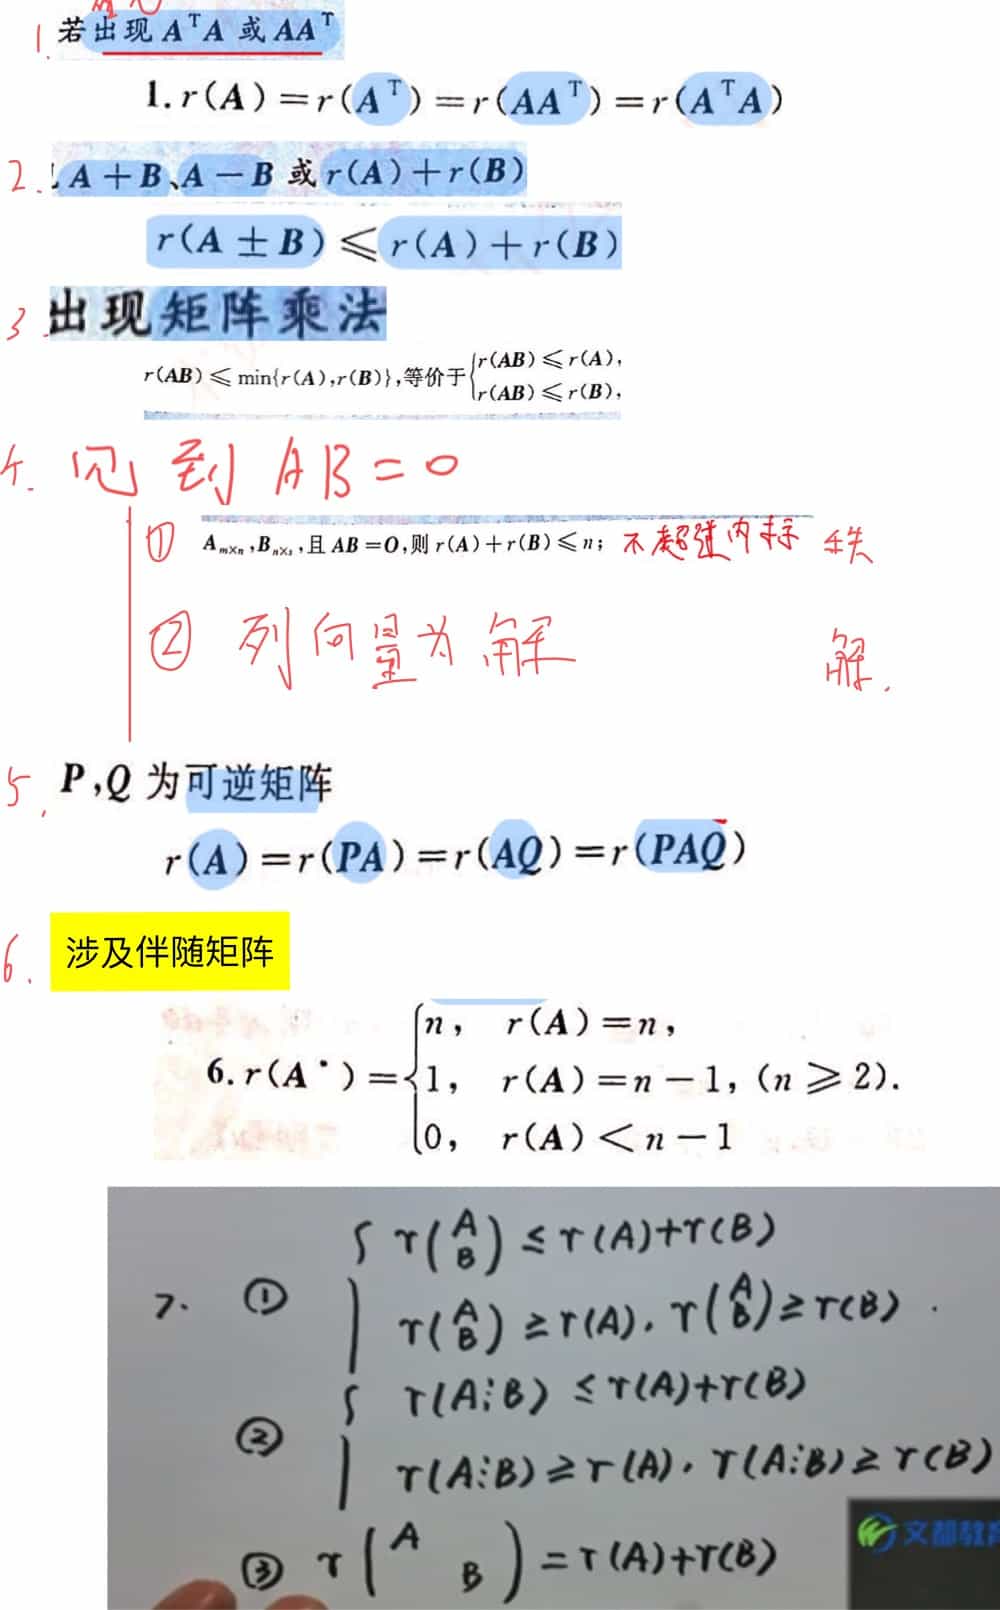 1. 若出现 AᵀA 或 AAᵀ
1. r(A)=r(Aᵀ)=r(AAᵀ)=r(AᵀA)
2. A+B、A-B 或 r(A)+r(B)
r(A±B)≤r(A)+r(B)
3. 出现矩阵乘法
r(AB)≤min{r(A),r(B)},等价于{r(AB)≤r(A),
r(AB)≤r(B),
4. 见到 AB=0
① Aₘₓₙ,Bₙₓₛ,且 AB=O,则 r(A)+r(B)≤n; 不超过内标 秩
② 列向量为解 解.
5. P,Q 为可逆矩阵
r(A)=r(PA)=r(AQ)=r(PAQ)
6. 涉及伴随矩阵
n, r(A)=n,
6. r(A*)={1, r(A)=n-1,(n≥2).
0, r(A)<n-1
7. ① { r(A B)≤r(A)+r(B)
r(A B)≥r(A), r(A B)≥r(B).
② { r(A⋮B)≤r(A)+r(B)
r(A⋮B)≥r(A), r(A⋮B)≥r(B)
文都教育
③ r(A B)=r(A)+r(B)